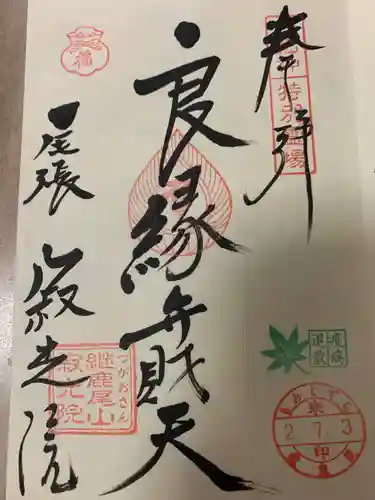 奉拝
良縁弁財天
尾張
寂光院
福
継鹿尾山
寂光院
つがおさん
2.7.3
印